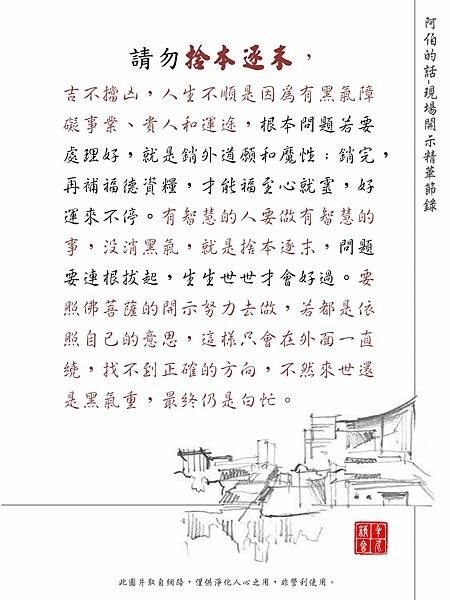 請勿捨本逐末，
吉不擋凶，人生不順是因為有黑氣障
礙事業、貴人和運途，根本問題若要
處理好，就是銷外道願和魔性；銷完，
再補福德資糧，才能福至心就靈，好
運來不停。有智慧的人要做有智慧的
事，沒消黑氣，就是捨本逐末，問題
要連根拔起，生生世世才會好過。要
照佛菩薩的開示努力去做，若都是依
照自己的意思，這樣只會在外面一直
繞，找不到正確的方向，不然來世還
是黑氣重，最終仍是白忙。
阿伯的話-現場開示精華節錄
此圖片取自網路，僅供淨化人心之用，非營利使用。